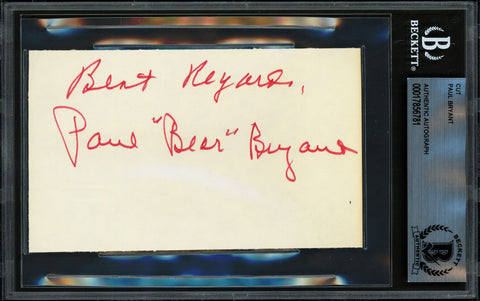 Best Regards,
Paul "Bear" Bryant
BECKETT
CUT
PAUL BRYANT
AUTHENTIC AUTOGRAPH
00017856781
BECKETT
AUTHENTICATED